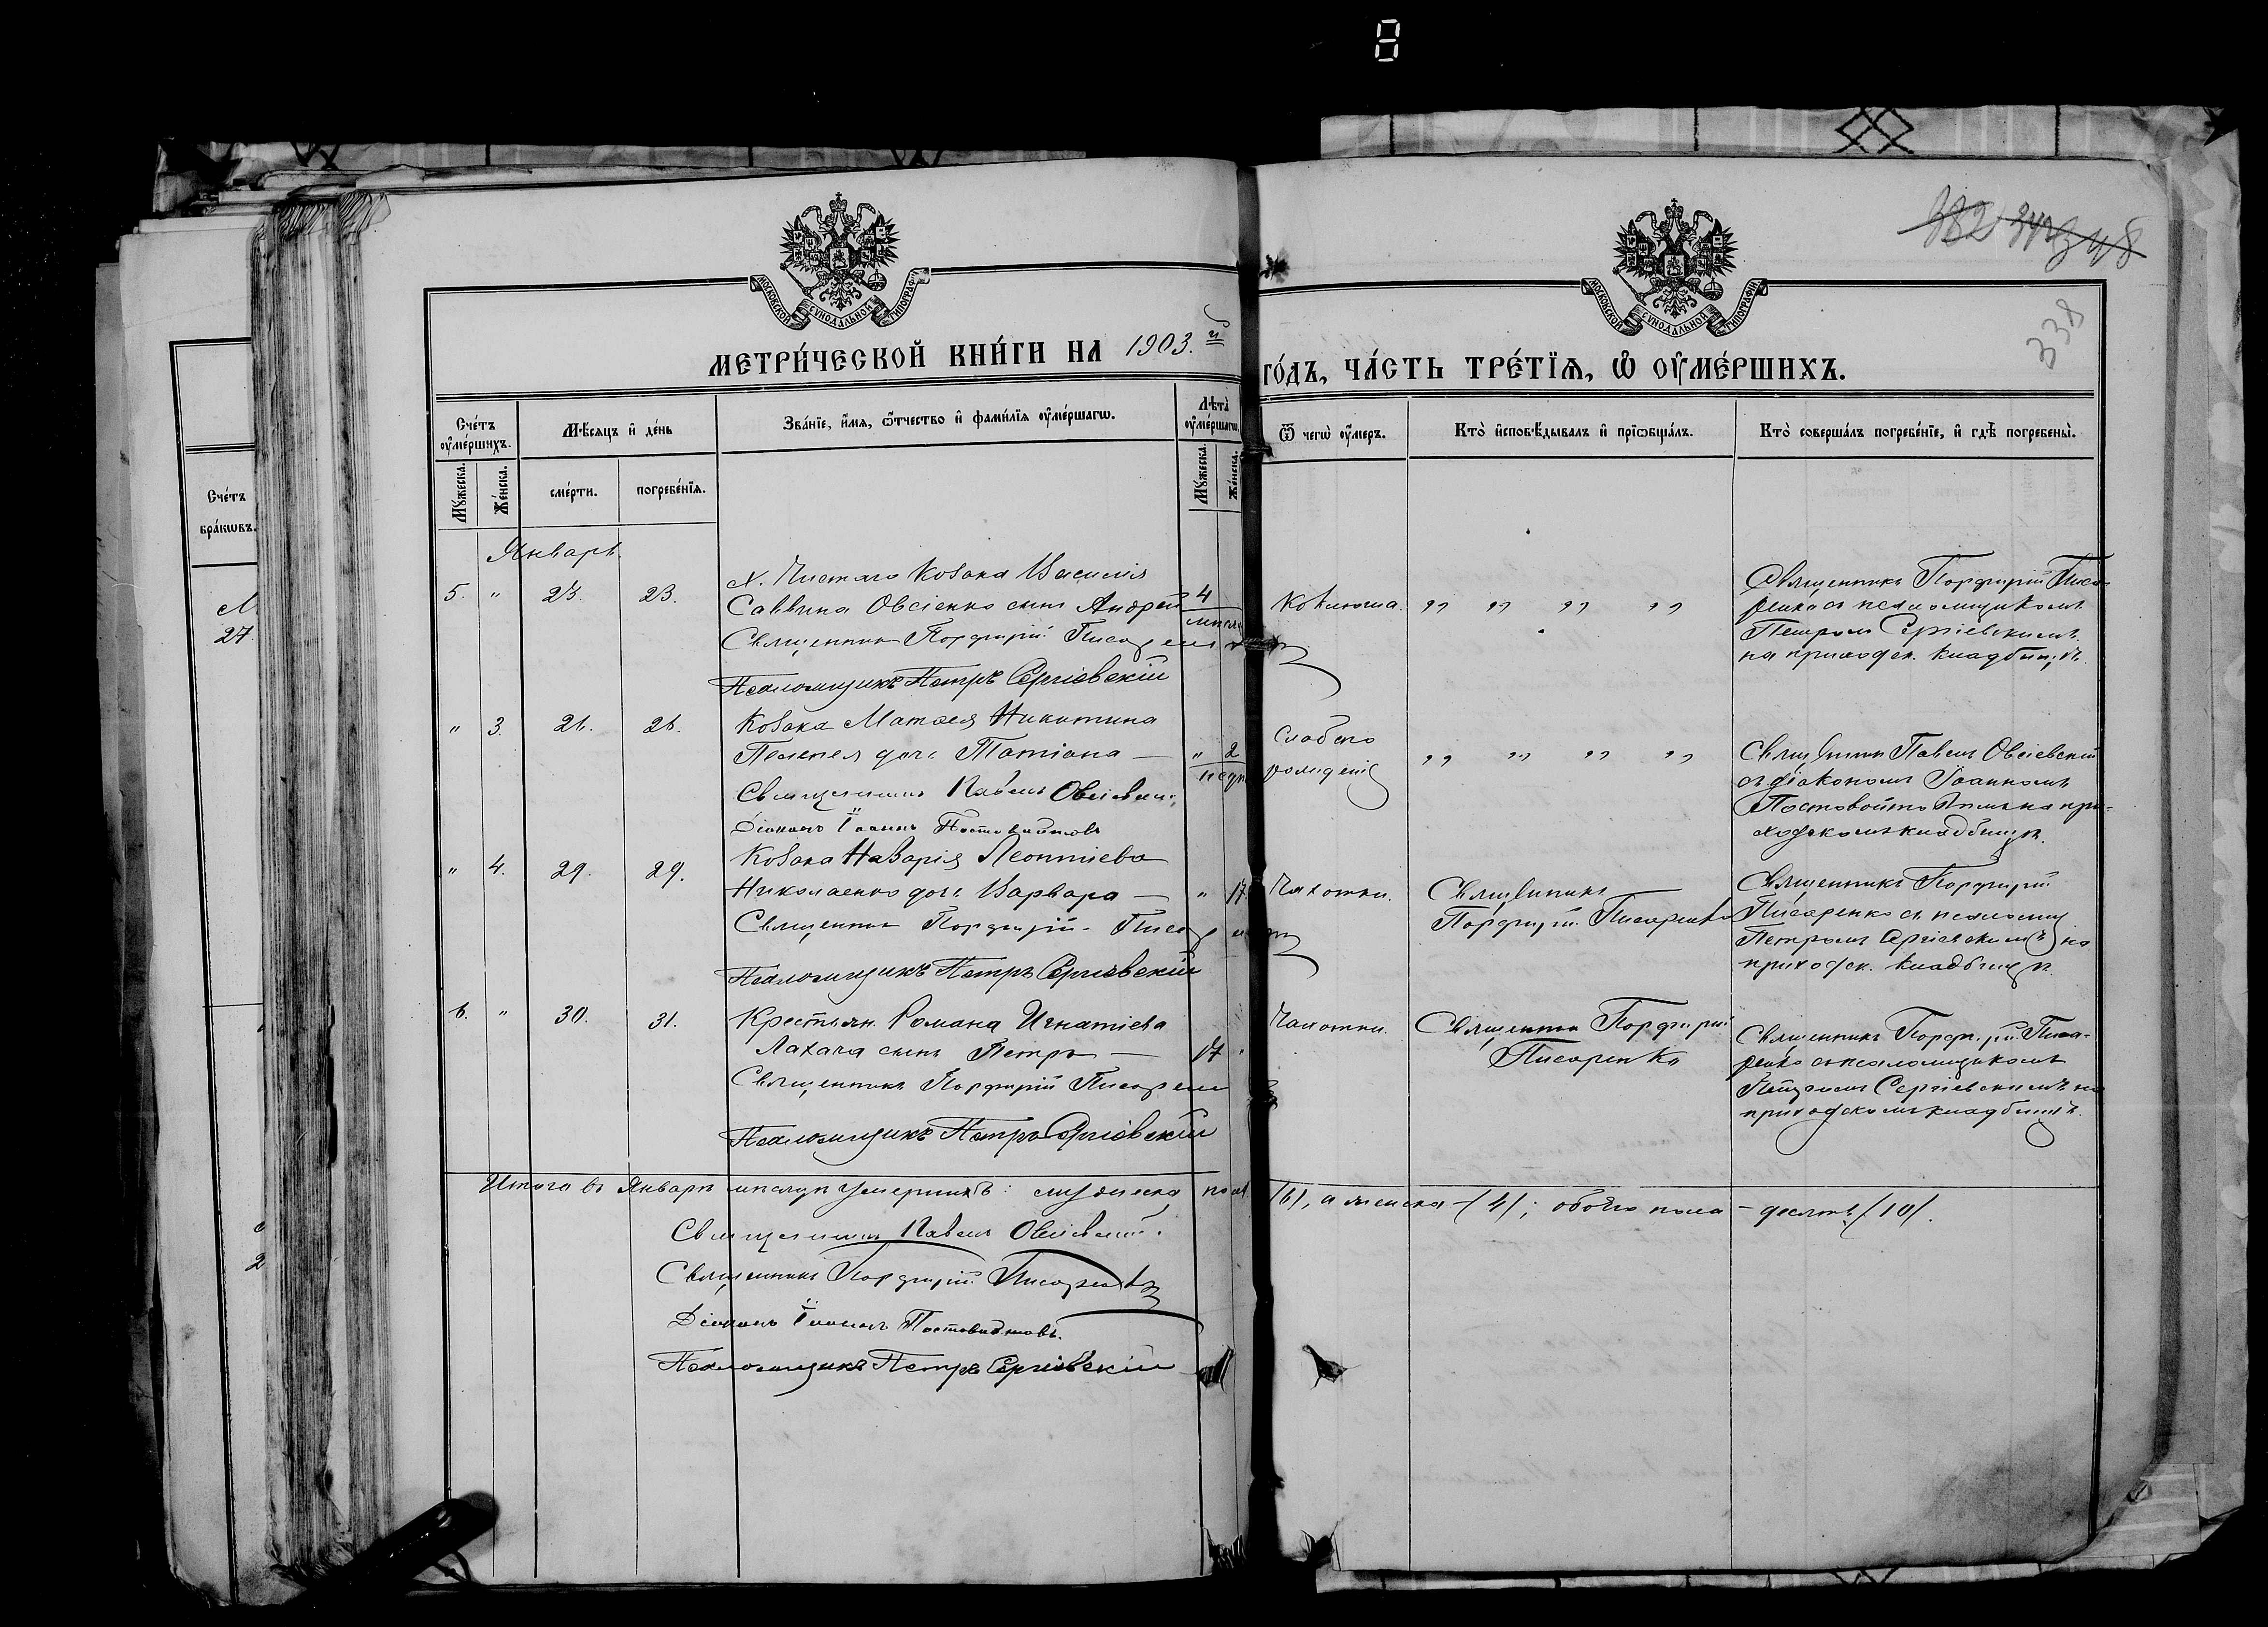 8
МОСКОВСКОЙ СѴНОДАЛЬНОЙ ТИПОГРАФІИ
МОСКОВСКОЙ СѴНОДАЛЬНОЙ ТИПОГРАФІИ
338
МЕТРИ́ЧЕСКОЙ КНИ́ГИ НА 1903.й
ГО́ДЪ, ЧА́СТЬ ТРЕ́ТЇѦ, Ѡ ОУМЕ́РШИХЪ.
Сче́тъ бра́кѡвъ.
27.
Сче́тъ оумершихъ.
Мѣсяцъ и де́нь
Зва́нїе, и́мя, ѻ́тчество и фами́лїя оуме́ршагѡ.
Лѣта̀ оуме́ршагѡ.
Ѿ чегѡ̀ оу́меръ.
Кто̀ исповѣ́дывалъ и прїѡбща́лъ.
Кто̀ соверша́лъ погребе́нїе, и гдѣ̀ погребены̀.
Му́жеска.
Же́нска.
сме́рти.
погребе́нїя.
Му́жеска.
Же́нска.
Январь.
5. " 23. 23.
х. Чистаго Козака Василія
Саввина Овсіенко сынъ Андрей 4
Священникъ Порфирій Писаренко
Псаломщикъ Петръ Сергіевскій
Коклюша. " " " "
Священникъ Порфирій Писа-
ренко съ псаломщикомъ
Петромъ Сергіевскимъ
на приходск. кладбищѣ.
" 3. 26. 26.
Козака Матѳея Никитина
дочь Татіана — " 2
недѣ
Священникъ Павелъ Овсіевскій
Діаконъ Іоаннъ Постовойтовъ
Слабаго
рожденія
" " " "
Священникъ Павелъ Овсіевскій
съ діакономъ Іоанномъ
Постовойтовымъ на при-
ходскомъ кладбищѣ.
" 4. 29. 29.
Козака Назарія Леонтіева
Николаенко дочь Варвара — " 17.
Священникъ Порфирій Писаренко
Псаломщикъ Петръ Сергіевскій
Чахотки.
Священникъ
Порфирій Писаренко
Священникъ Порфирій
Писаренко съ псаломщ
Петромъ Сергіевскимъ на
приходск. кладбищѣ.
6. " 30. 31.
Крестьян. Романа Игнатіева
Лахача сынъ Петръ — 17 "
Священникъ Порфирій Писаренко
Псаломщикъ Петръ Сергіевскій
Чахотки.
Священникъ Порфирій
Писаренко
Священникъ Порфирій Писа-
ренко съ псаломщикомъ
Петромъ Сергіевскимъ на
приходскомъ кладбищѣ.
Итого въ Январѣ мѣсяцѣ умершихъ: мужеска пола /6/, а женска - /4/; обоего пола - десять /10/.
Священникъ Павелъ Овсіевскій.
Священникъ Порфирій Писаренко
Діаконъ Іоаннъ Постовойтовъ.
Псаломщикъ Петръ Сергіевскій